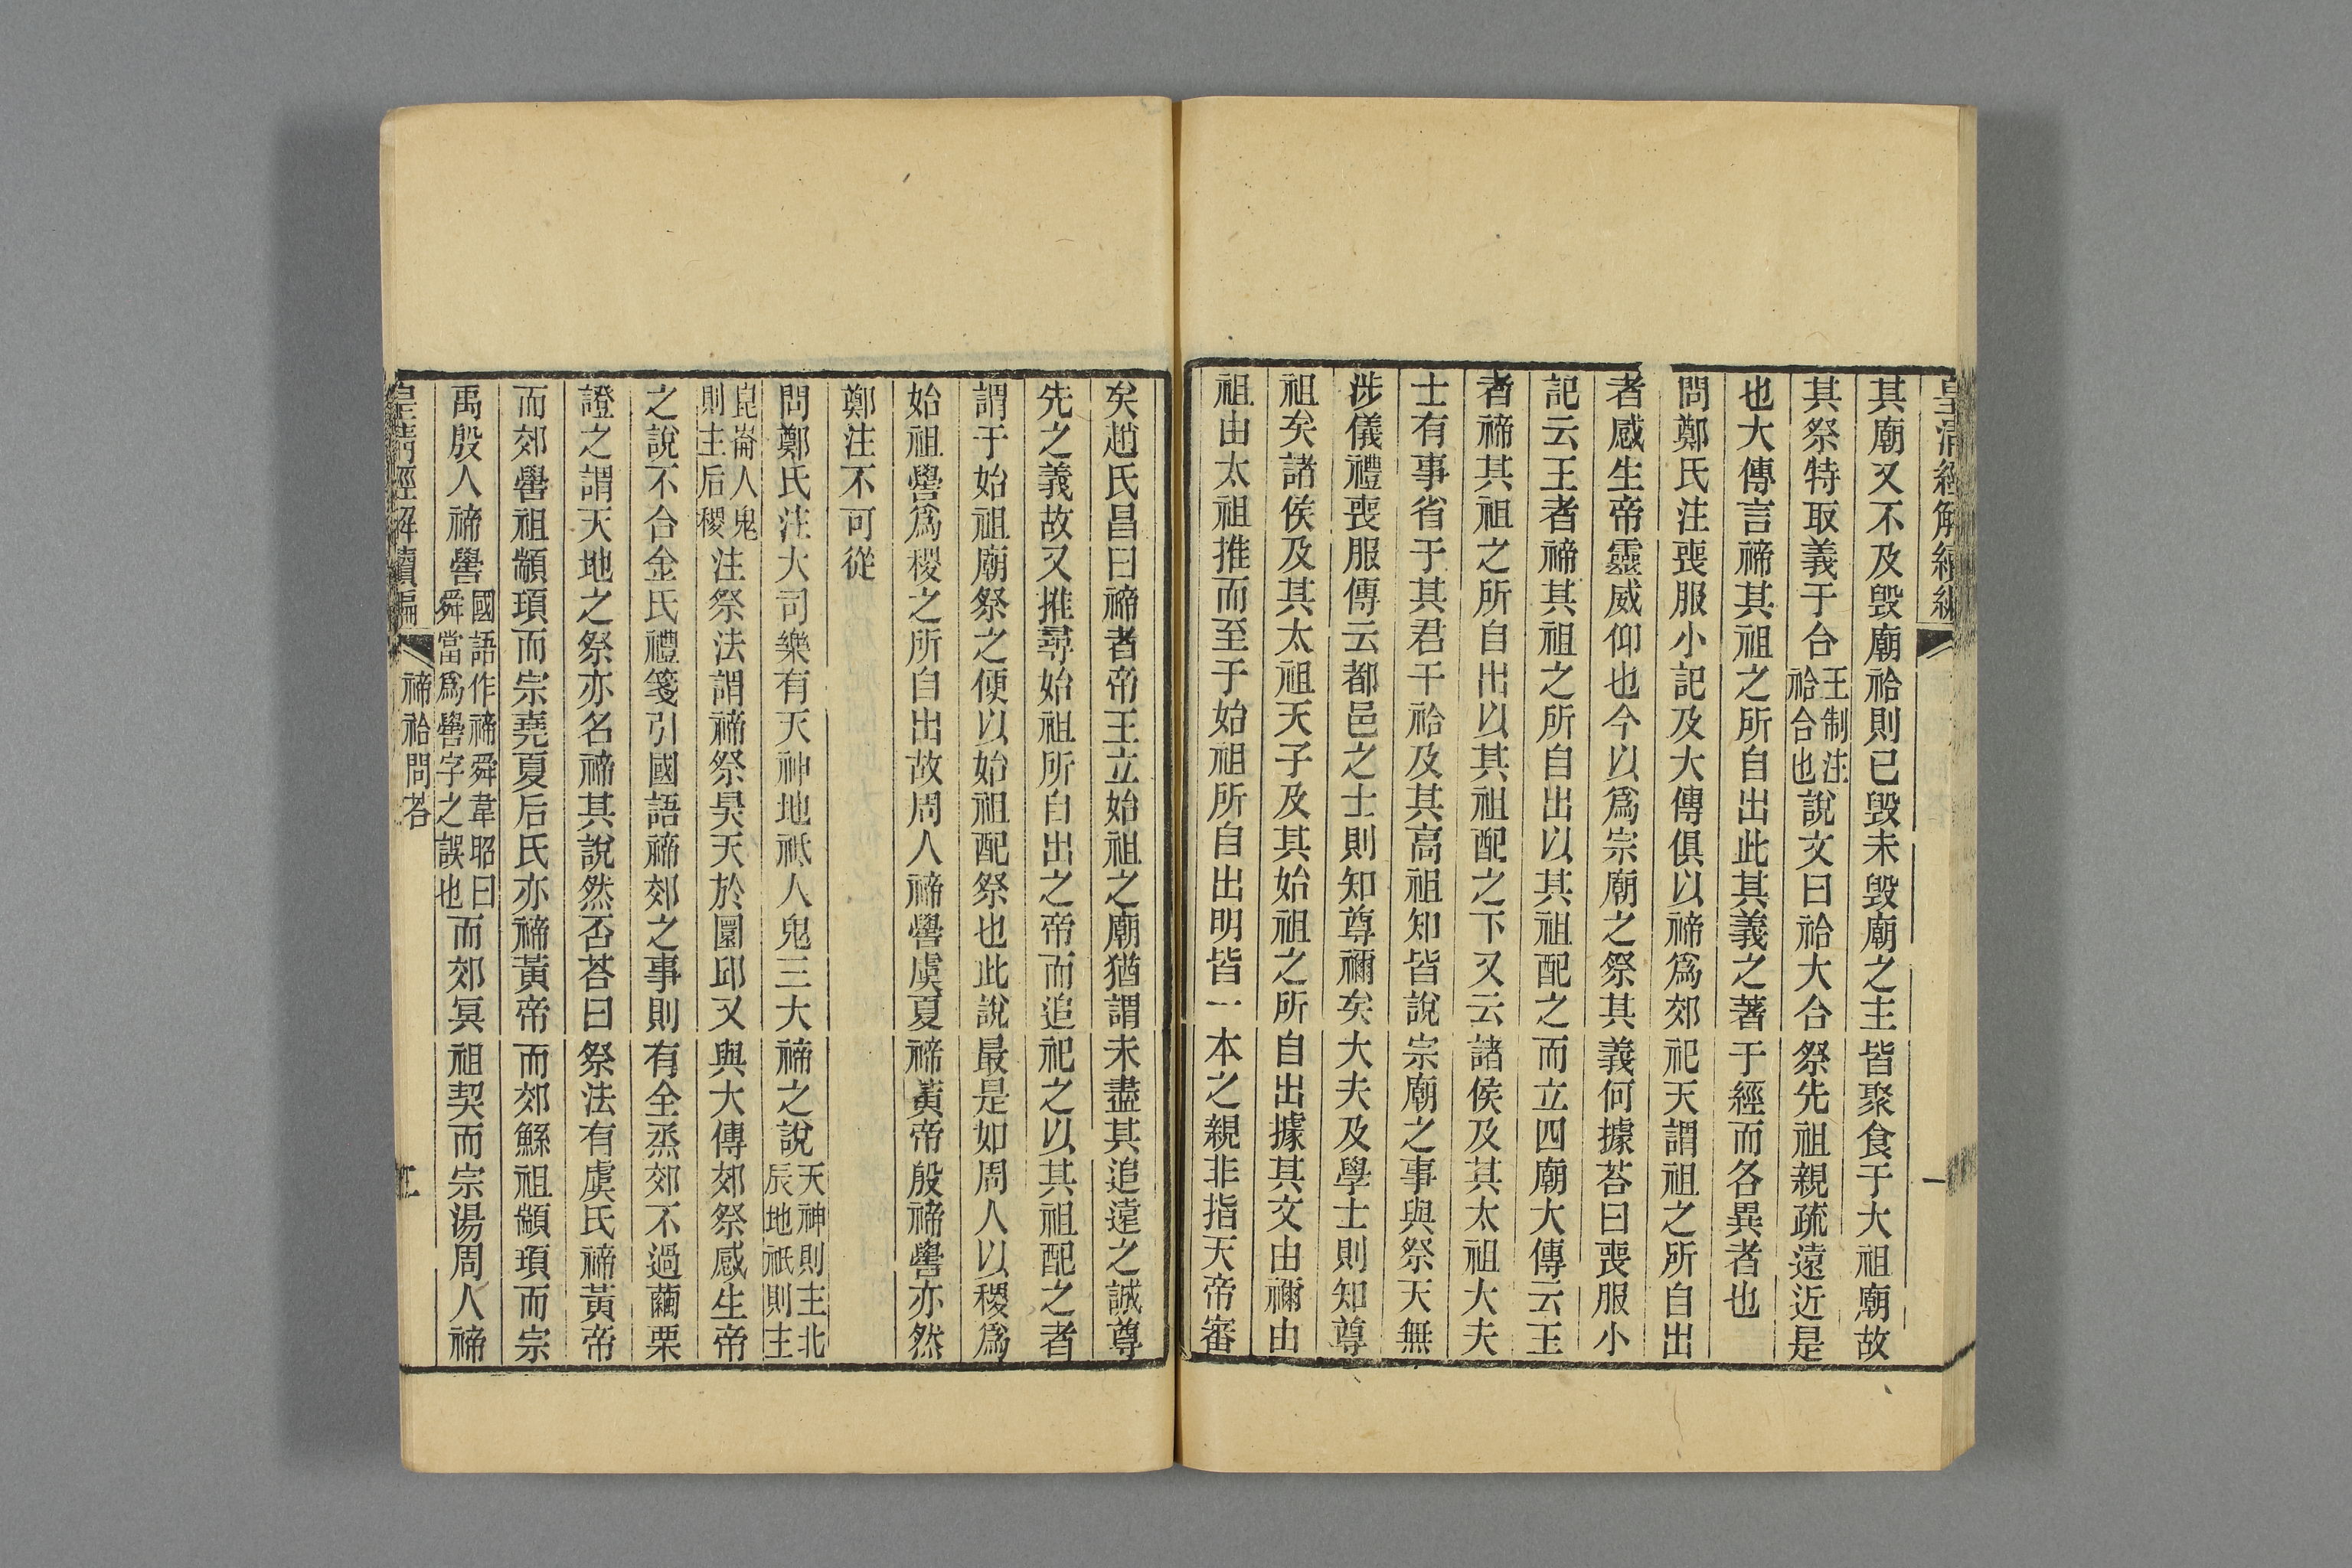 皇清經解續編
一
其廟又不及毀廟祫則已毀未毀廟之主皆聚食于大祖廟故
其祭特取義于合王制注祫合也說文曰祫大合祭先祖親疏遠近是
也大傳言禘其祖之所自出此其義之著于經而各異者也
問鄭氏注喪服小記及大傳俱以禘爲郊祀天謂祖之所自出
者感生帝靈威仰也今以爲宗廟之祭其義何據荅曰喪服小
記云王者禘其祖之所自出以其祖配之而立四廟大傳云王
者禘其祖之所自出以其祖配之下又云諸侯及其太祖大夫
士有事省于其君干祫及其高祖知皆說宗廟之事與祭天無
涉儀禮喪服傳云都邑之士則知尊禰矣大夫及學士則知尊
祖矣諸侯及其太祖天子及其始祖之所自出據其文由禰由
祖由太祖推而至于始祖所自出明皆一本之親非指天帝審
矣趙氏昌曰禘者帝王立始祖之廟猶謂未盡其追遠之誠尊
先之義故又推尋始祖所自出之帝而追祀之以其祖配之者
謂于始祖廟祭之便以始祖配祭也此說最是如周人以稷爲
始祖嚳爲稷之所自出故周人禘嚳虞夏禘黃帝殷禘嚳亦然
鄭注不可從
問鄭氏注大司樂有天神地祗人鬼三大禘之說天神則主北辰地祇則主
崑崙人鬼則主后稷注祭法謂禘祭昊天於圜邱又與大傳郊祭感生帝
之說不合金氏禮箋引國語禘郊之事則有全烝郊不過繭栗
證之謂天地之祭亦名禘其說然否荅曰祭法有虞氏禘黃帝
而郊嚳祖顓頊而宗堯夏后氏亦禘黃帝而郊鯀祖顓頊而宗
禹殷人禘嚳國語作禘舜韋昭曰舜當爲嚳字之誤也而郊冥祖契而宗湯周人禘
皇清經解續編
禘祫問荅